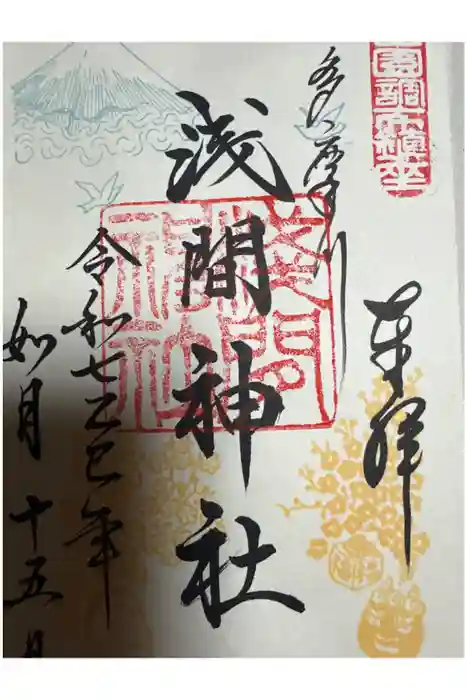 田園調布鎮座
奉拝
多摩川
浅間神社
浅間
神社
令和七乙巳年
如月十五日